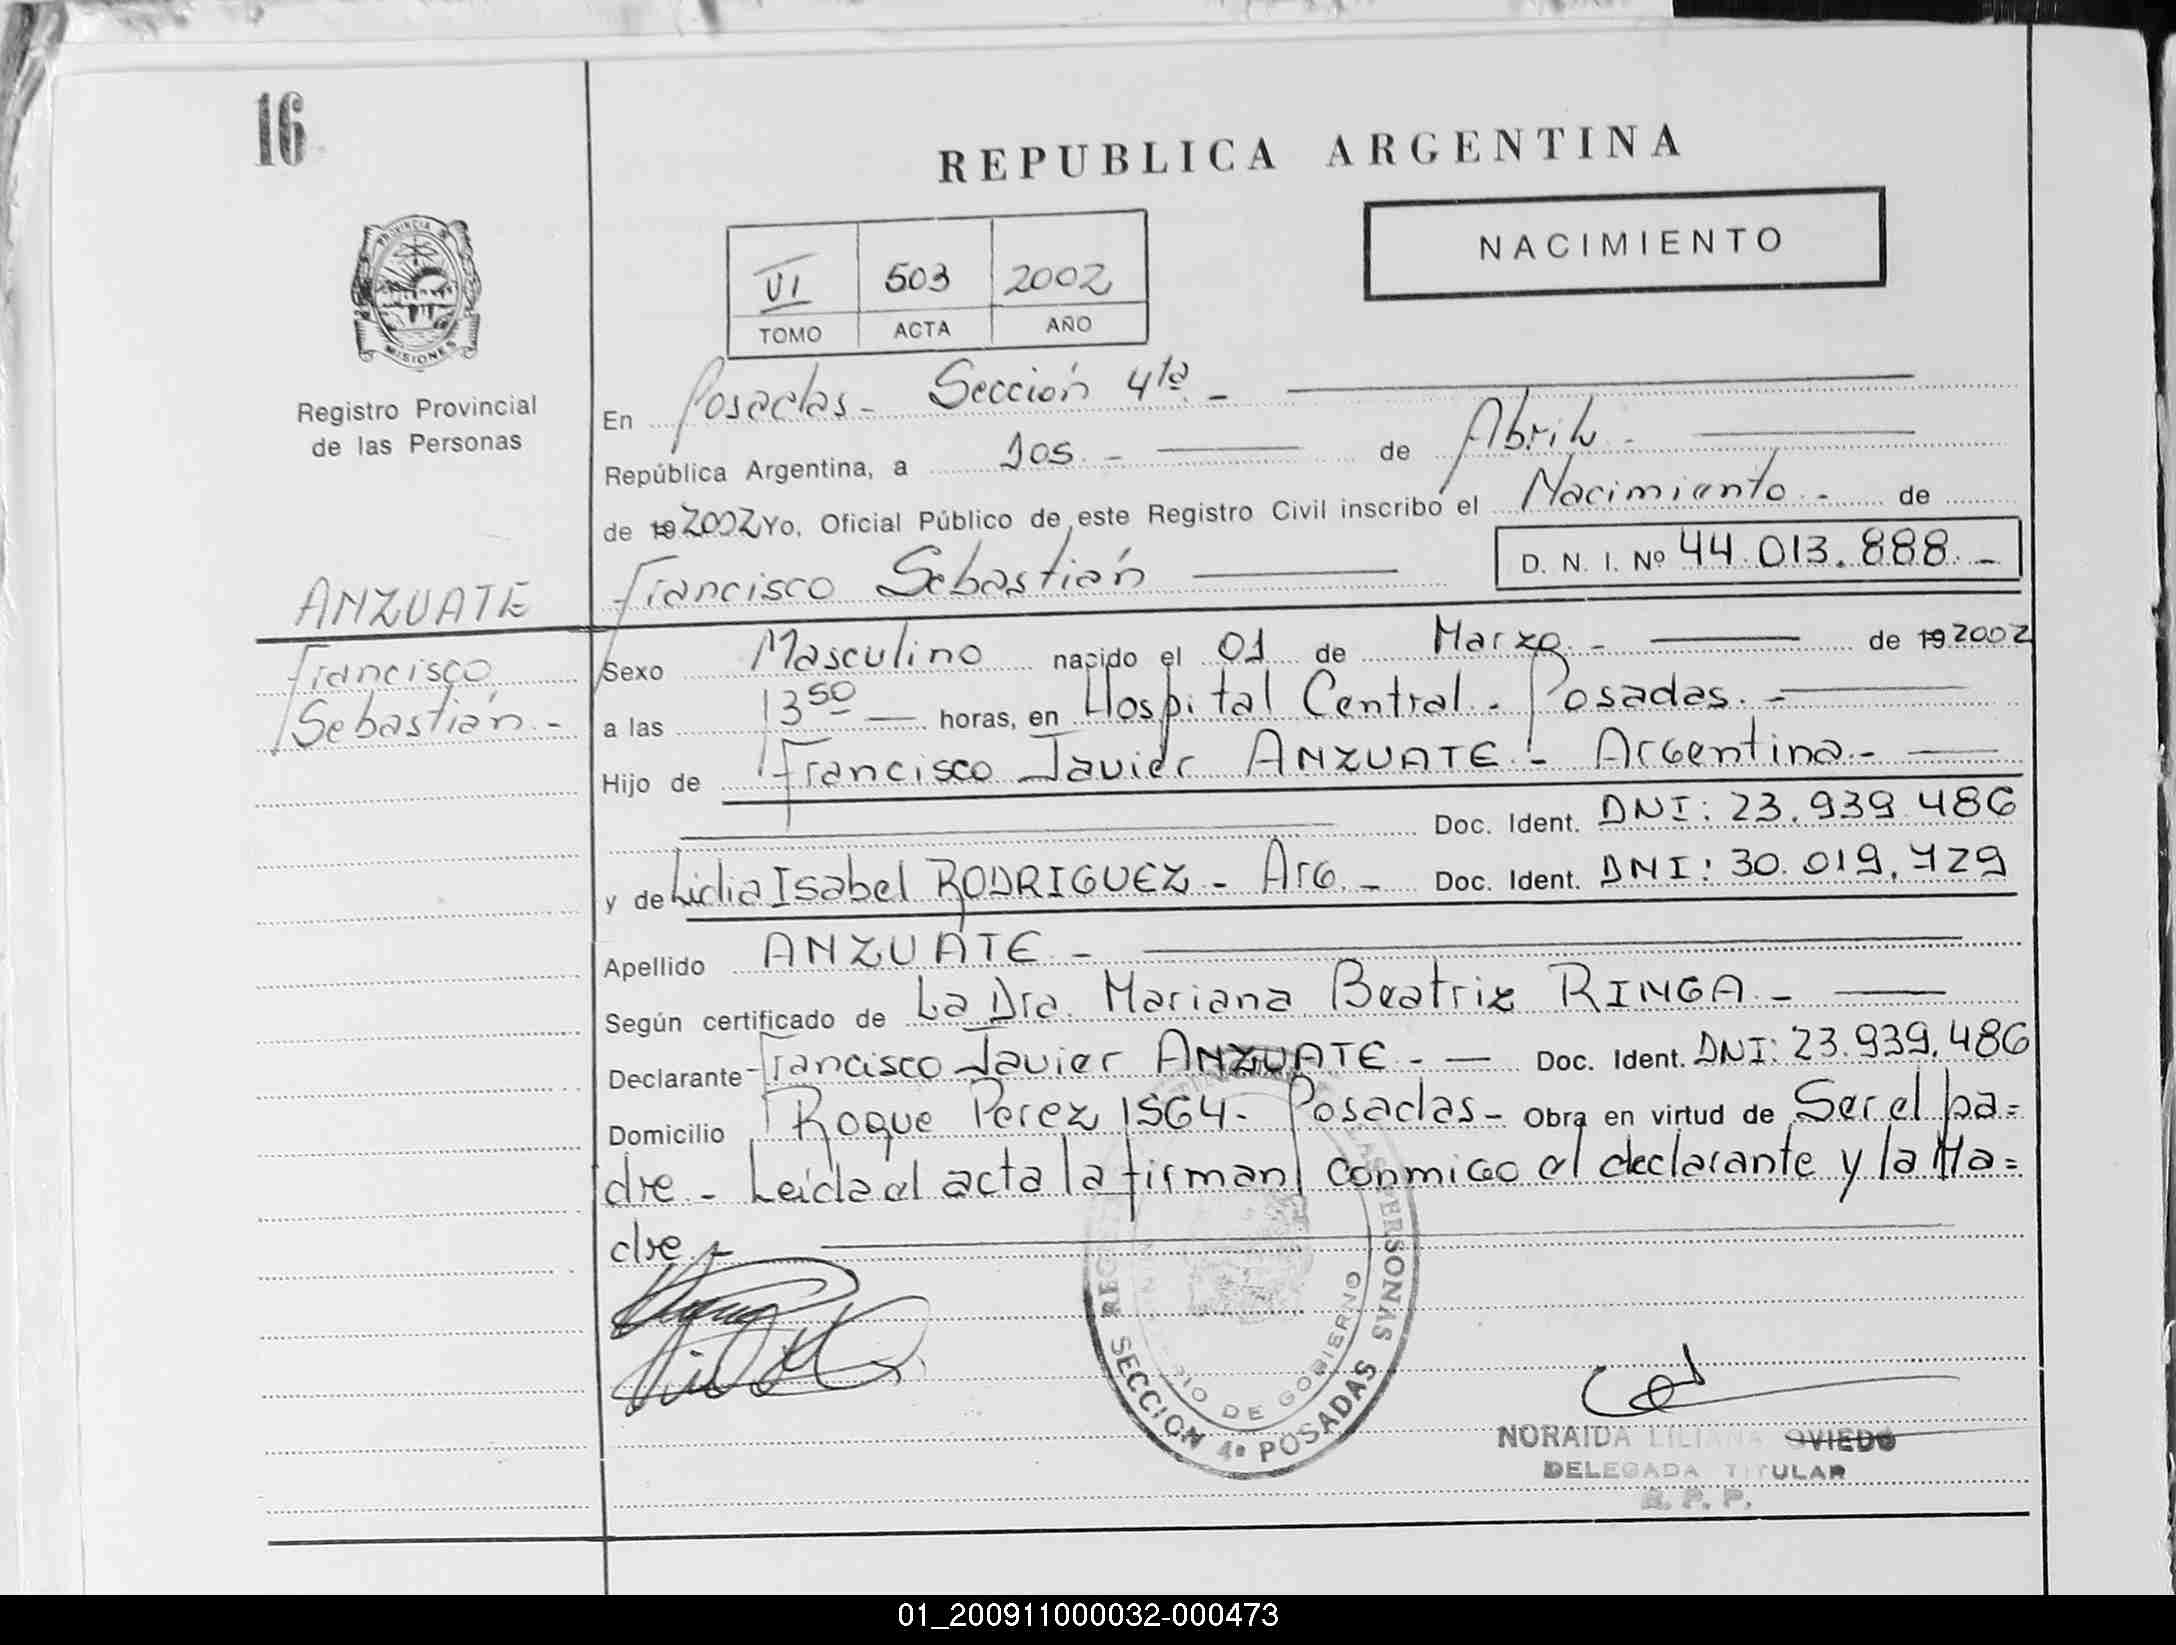 16
REPUBLICA ARGENTINA
NACIMIENTO
VI 503 2002
TOMO ACTA AÑO
PROVINCIA DE
MISIONES
Registro Provincial
de las Personas
En Posadas - Sección 4ta. -
República Argentina, a Dos. - de Abril. -
de 19 2002 Yo, Oficial Público de este Registro Civil inscribo el Nacimiento. - de
ANZUATE
Francisco Sebastián D. N. I. Nº 44.013.888. -
Francisco
Sebastián. -
Sexo Masculino nacido el 01 de Marzo. - de 19 2002
a las 13 50 horas, en Hospital Central. - Posadas. -
Hijo de Francisco Javier ANZUATE. - Argentina. -
Doc. Ident. DNI: 23.939.486
y de Lidia Isabel RODRIGUEZ - Arg. - Doc. Ident. DNI: 30.019.729
Apellido ANZUATE. -
Según certificado de La Dra. Mariana Beatriz RINGA. -
Declarante Francisco Javier ANZUATE. - Doc. Ident. DNI: 23.939.486
Domicilio Roque Perez 1564 - Posadas - Obra en virtud de Ser el pa=
dre - Leida el acta la firman conmigo el declarante y la Ma=
dre. -
PERSONAS
DE GOBIERNO
SECCION 4ª POSADAS
NORAIDA LILIANA OVIEDO
DELEGADA TITULAR
R. P. P.
01_200911000032-000473